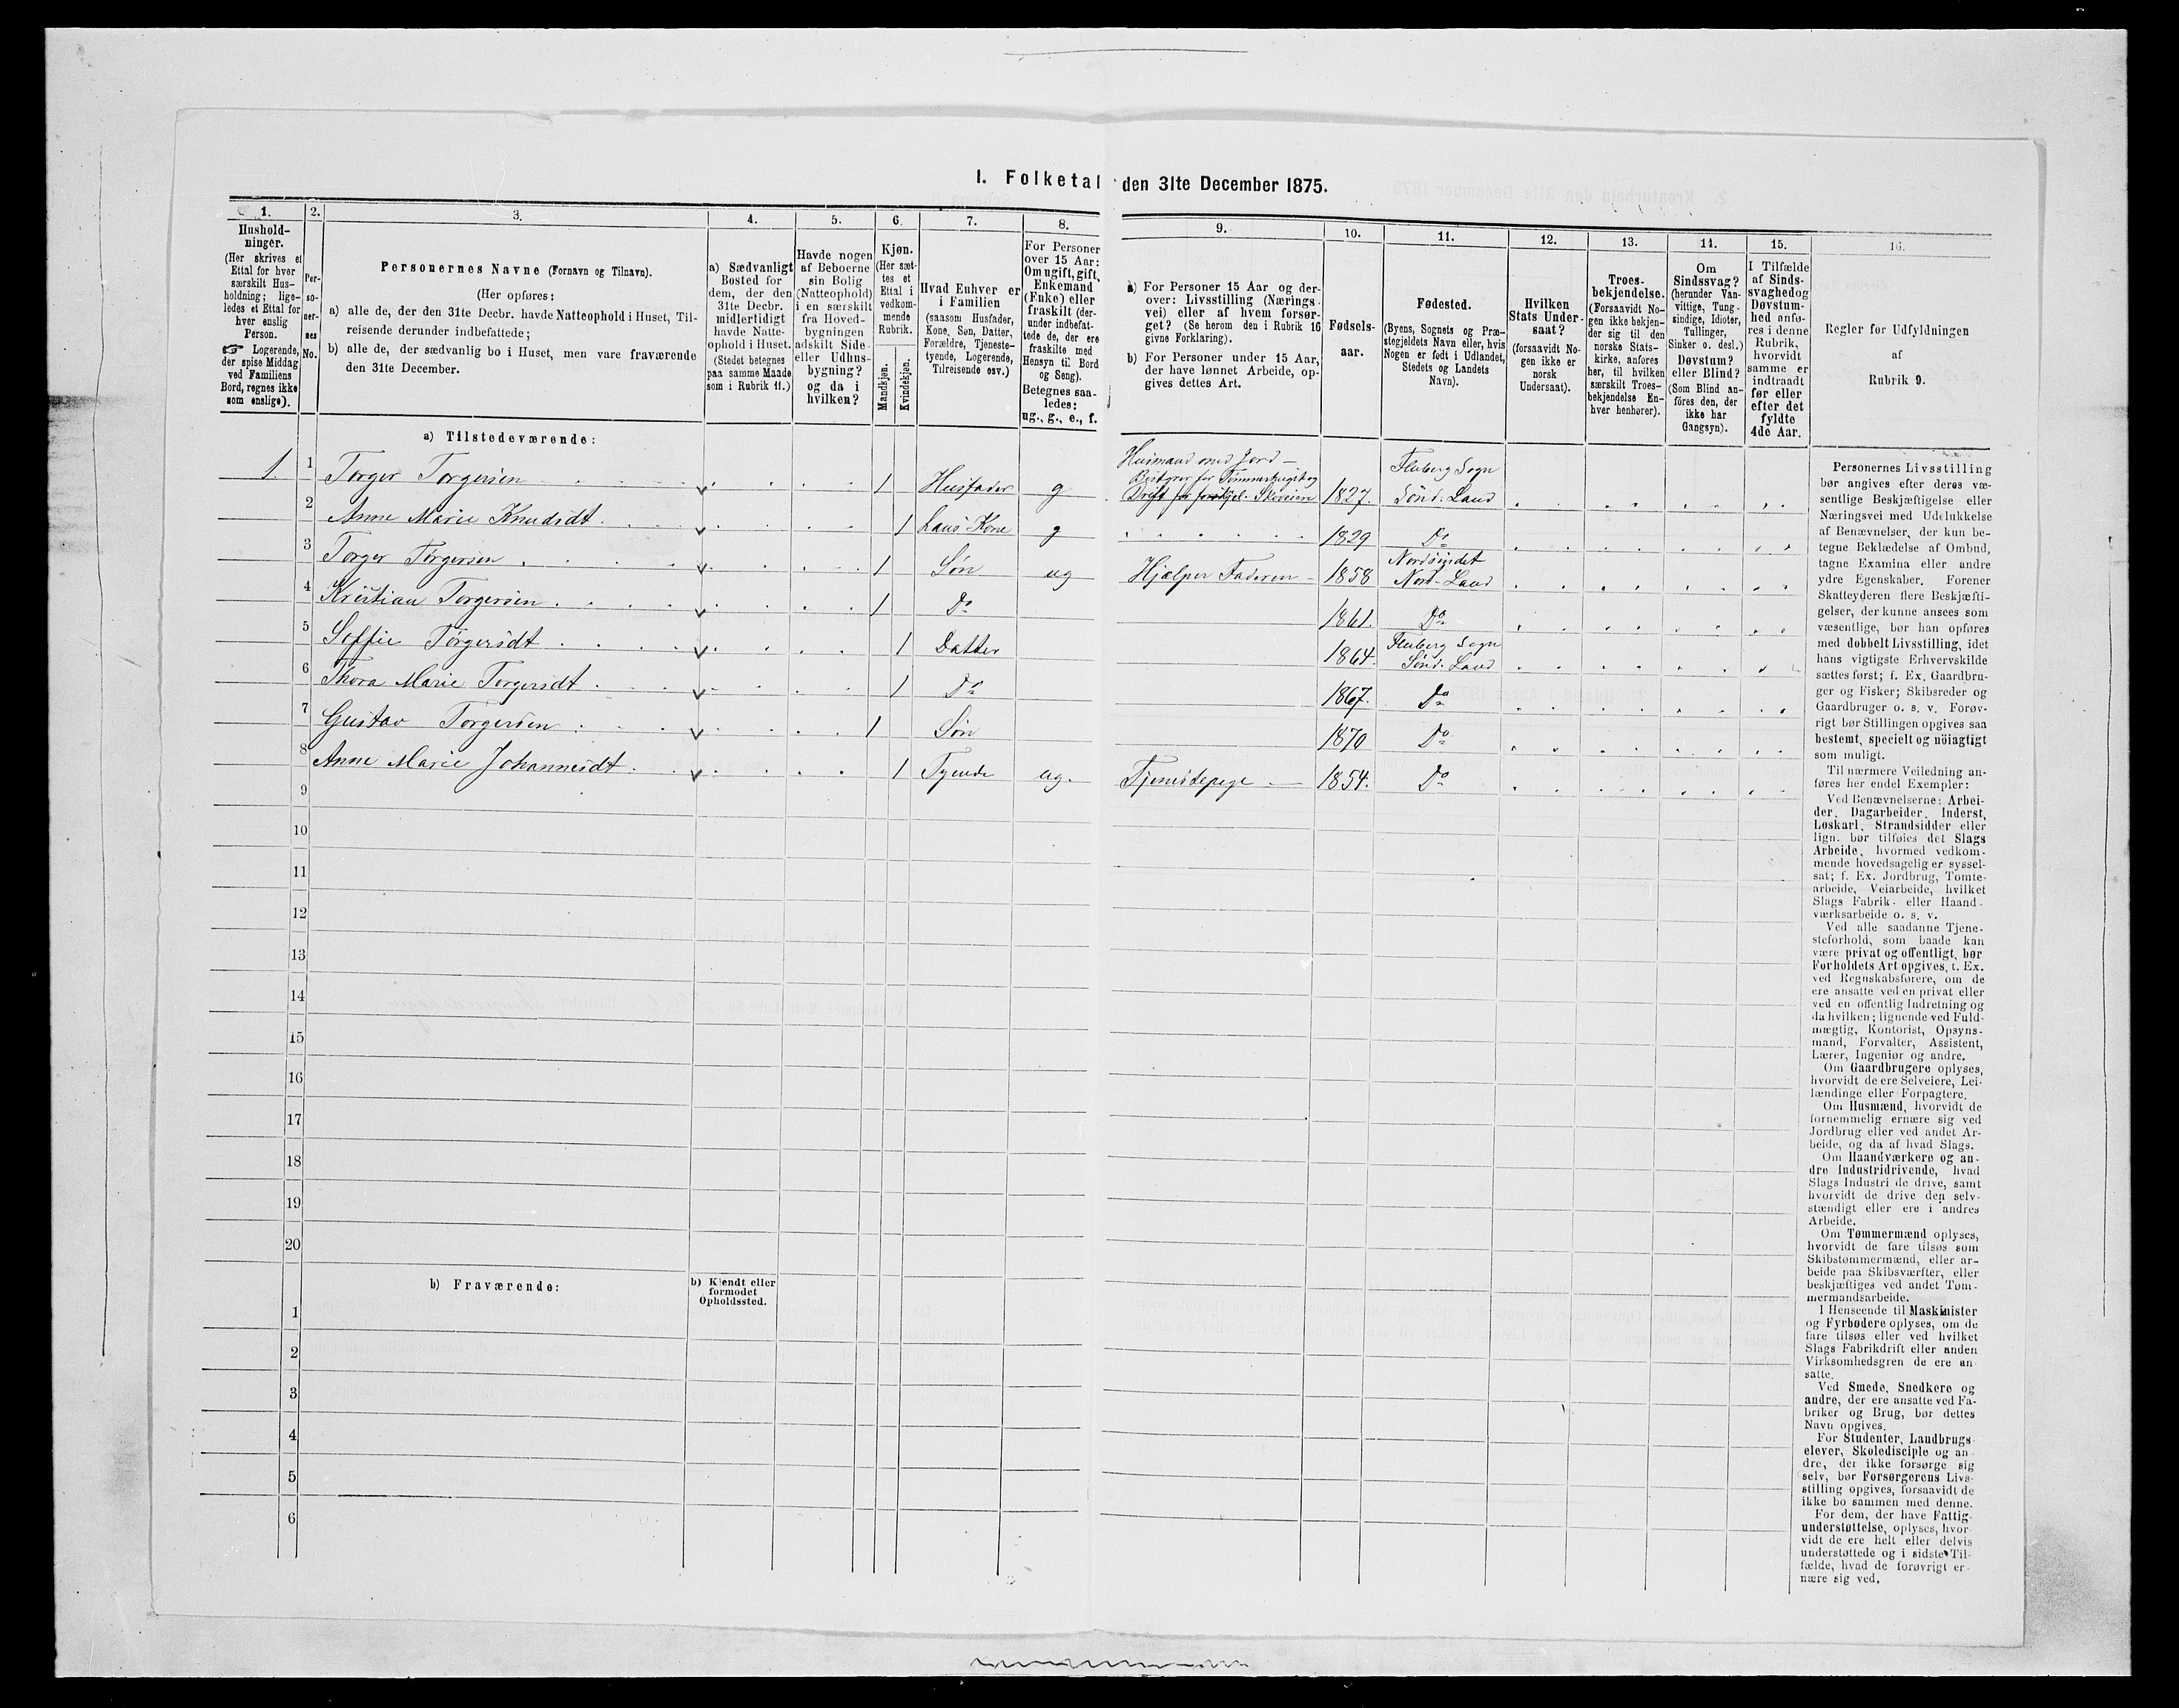 1. Folketal den 31te December 1875.
1.
Hushold-
ninger.
(Her skrives et
Ettal for hver
særskilt Hus-
holdning; lige-
ledes et Ettal for
hver enslig
Person.
☞ Logerende,
der spise Middag
ved Familiens
Bord, regnes ikke
som enslige).
2.
Per-
so-
ner-
nes
No.
3.
Personernes Navne (Fornavn og Tilnavn).
(Her opføres:
a) alle de, der den 31te Decbr. havde Natteophold i Huset, Til-
reisende derunder indbefattede;
b) alle de, der sædvanlig bo i Huset, men vare fraværende
den 31te December.
4.
a) Sædvanligt
Bosted for
dem, der den
31te Decbr.
midlertidigt
havde Natte-
ophold i Huset.
(Stedet betegnes
paa samme Maade
som i Rubrik 11.)
5.
Havde nogen
af Beboerne
sin Bolig
(Natteophold)
i en særskilt
fra Hoved-
bygningen
adskilt Side-
eller Udhus-
bygning?
og da i
hvilken?
6.
Kjøn.
(Her sæt-
tes et
Ettal i
vedkom-
mende
Rubrik.
Mandkjøn.
Kvindekjøn.
7.
Hvad Enhver er
i Familien
(saasom Husfader,
Kone, Søn, Datter,
Forældre, Tjeneste-
tyende, Logerende,
Tilreisende osv.)
8.
For Personer
over 15 Aar:
Om ugift, gift,
Enkemand
(Enke) eller
fraskilt (der-
under indbefat-
tede de, der ere
fraskilte med
Hensyn til Bord
og Seng).
Betegnes saa-
ledes:
ug., g., e., f.
9.
a) For Personer 15 Aar og der-
over: Livsstilling (Nærings-
vei) eller af hvem forsør-
get? (Se herom den i Rubrik 16
givne Forklaring).
b) For Personer under 15 Aar,
der have lønnet Arbeide, op-
gives dettes Art.
10.
Fødsels-
aar.
11.
Fødested.
(Byens, Sognets og Præ-
stegjeldets Navn eller, hvis
Nogen er født i Udlandet,
Stedets og Landets
Navn).
12.
Hvilken
Stats Under-
saat?
(forsaavidt No-
gen ikke er
norsk
Undersaat).
13.
Troes-
bekjendelse.
(Forsaavidt No-
gen ikke bekjen-
der sig til den
norske Stats-
kirke, anføres
her, til hvilken
særskilt Troes-
bekjendelse En-
hver henhører).
14.
Om
Sindssvag?
(herunder Van-
vittige, Tung-
sindige, Idioter,
Tullinger,
Sinker o. desl.)
Døvstum?
eller Blind?
(Som Blind an-
föres den, der
ikke har
Gangsyn).
15.
I Tilfælde
af Sinds-
svaghed og
Døvstum-
hed anfø-
res i denne
Rubrik,
hvorvidt
samme er
indtraadt
før eller
efter det
fyldte
4de Aar.
16.
Regler for Udfyldningen
af
Rubrik 9.
a) Tilstedeværende:
1. 1 Torger Torgersen 1 Husfader g Husmand med Jord – Bestyrer for Tømmerkjøb og Drift 1827. Fluberg Sogn Sönd. Land
2 Anne Marie Knudsdt. 1 hans Kone g 1829 Do
3 Torger Torgersen 1 Søn ug Hjælper Faderen 1858 Nordsindet Nord-Land
4 Kristian Torgersen 1 Do 1861. Do
5 Soffie Torgersdt 1 Datter 1864. Fluberg Sogn Sönd. Land
6 Thora Marie Torgersdt 1 Do 1867. Do
7 Gustav Torgersen 1 Søn 1870 Do
8 Anne Marie Johannesdt. 1 Tyende ug. Tjenestepige 1854. Do
9
10
11
12
13
14
15
16
17
18
19
20
b) Fraværende:
b) Kjendt eller
formodet
Opholdssted.
1
2
3
4
5
6
Personernes Livsstilling
bør angives efter deres væ-
sentlige Beskjæftigelse eller
Næringsvei med Udelukkelse
af Benævnelser, der kun be-
tegne Beklædelse af Ombud,
tagne Examina eller andre
ydre Egenskaber. Forener
Skatteyderen flere Beskjæfti-
gelser, der kunne ansees som
væsentlige, bør han opføres
med dobbelt Livsstilling, idet
hans vigtigste Erhvervskilde
sættes først; f. Ex. Gaardbru-
ger og Fisker; Skibsreder og
Gaardbruger o. s. v. Forøv-
rigt bør Stillingen opgives saa
bestemt, specielt og nöiagtigt
som muligt.
Til nærmere Veiledning an-
føres her endel Exempler:
Ved Benævnelserne: Arbei-
der, Dagarbeider, Inderst,
Løskarl, Strandsidder eller
lign. bør tilføies det Slags
Arbeide, hvormed vedkom-
mende hovedsagelig er syssel-
sat; f. Ex. Jordbrug, Tomte-
arbeide, Veiarbeide, hvilket
Slags Fabrik- eller Haand-
værksarbeide o. s. v.
Ved alle saadanne Tjene-
steforhold, som baade kan
være privat og offentligt, bør
Forholdets Art opgives, t. Ex.
ved Regnskabsførere, om de
ere ansatte ved en privat eller
ved en offentlig Indretning og
da hvilken; lignende ved Fuld-
mægtig, Kontorist, Opsyns-
mand, Forvalter, Assistent,
Lærer, Ingeniør og andre.
Om Gaardbrugere oplyses,
hvorvidt de ere Selveiere, Lei-
lændinge eller Forpagtere.
Om Husmænd, hvorvidt de
fornemmelig ernære sig ved
Jordbrug eller ved andet Ar-
beide, og da af hvad Slags.
Om Haandværkere og an-
dre Industridrivende, hvad
Slags Industri de drive, samt
hvorvidt de drive den selv-
stændigt eller ere i andres
Arbeide.
Om Tømmermænd oplyses,
hvorvidt de fare tilsøs som
Skibstømmermænd, eller ar-
beide paa Skibsværfter, eller
beskjæftiges ved andet Tøm-
mermandsarbeide.
I Henseende til Maskinister
og Fyrbødere oplyses, om de
fare tilsøs eller ved hvilket
Slags Fabrikdrift eller anden
Virksomhedsgren de ere an-
satte.
Ved Smede, Snedkere og
andre, der ere ansatte ved Fa-
briker og Brug, bør dettes
Navn opgives.
For Studenter, Landbrugs-
elever, Skoledisciple og an-
dre, der ikke forsørge sig
selv, bør Forsørgerens Livs-
stilling opgives, forsaavidt de
ikke bo sammen med denne.
For dem, der have Fattig-
understøttelse, oplyses, hvor-
vidt de ere helt eller delvis
understøttede og i sidste Til-
fælde, hvad de forøvrigt er-
nære sig ved.